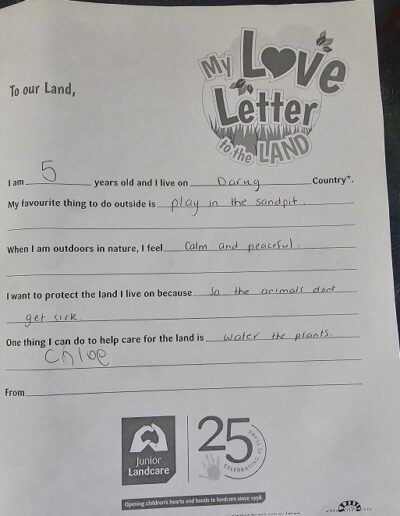 My Love
Letter
to the LAND
To our Land,
I am 5 years old and I live on Darug Country*.
My favourite thing to do outside is play in the sandpit.
When I am outdoors in nature, I feel calm and peaceful.
I want to protect the land I live on because so the animals dont
get sick.
One thing I can do to help care for the land is water the plants.
Chloe
From
Junior
Landcare
25
CELEBRATING 25 YEARS
Opening children's hearts and hands to landcare since 1998